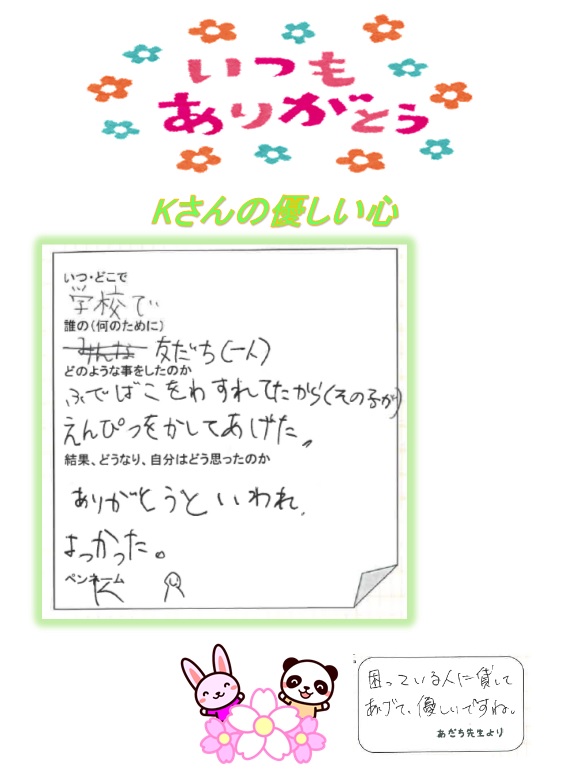 いつも
ありがとう
Kさんの優しい心
いつ・どこで
学校で
誰の(何のために)
みんな 友だち(一人)
どのような事をしたのか
ふでばこをわすれてたから(その子が)
えんぴつをかしてあげた。
結果、どうなり、自分はどう思ったのか
ありがとうといわれ、
ペンネーム
K
困っている人に貸して
あげて、優しいですね。
あだち先生より